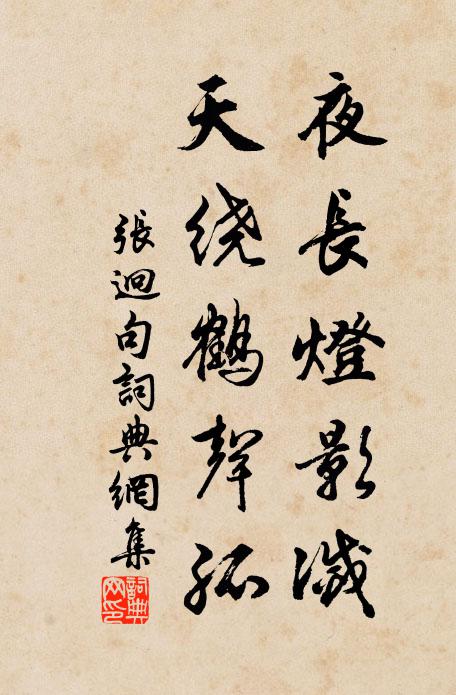 夜長燈影滅
天绕鶴聲孤
張迥句詞典網集
詞典網印